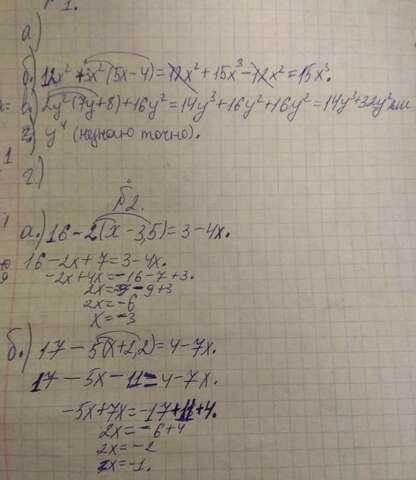 1.
а)
б.) 12x² + 3x²(5x-4) = 12x² + 15x³ - 12x² = 15x³.
2y²(7y+8)+16y² = 14y³+16y²+16y² = 14y³+32y²
y⁴ (незнаю точно).
1
г)
№2.
а.) 16-2(x-3,5)=3-4x.
16-2x+7=3-4x.
-2x+4x=-16-7+3.
2x=-9+3
2x=-6
x=-3
б.) 17-5(x+2,2)=4-7x.
17-5x-11=4-7x.
-5x+7x=-17+11+4.
2x=-6+4
2x=-2
x=-1.